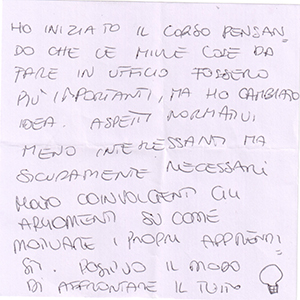 HO INIZIATO IL CORSO PENSAN
DO CHE LE MILLE COSE DA
FARE IN UFFICIO FOSSERO
PIÙ IMPORTANTI, MA HO CAMBIATO
IDEA. ASPETTI NORMATIVI
MENO INTERESSANTI MA
SICURAMENTE NECESSARI
MOLTO COINVOLGENTI GLI
ARGOMENTI SU COME
MOTIVARE I PROPRI APPRENDI
STI. POSITIVO IL MODO
DI AFFRONTARE IL TUTTO